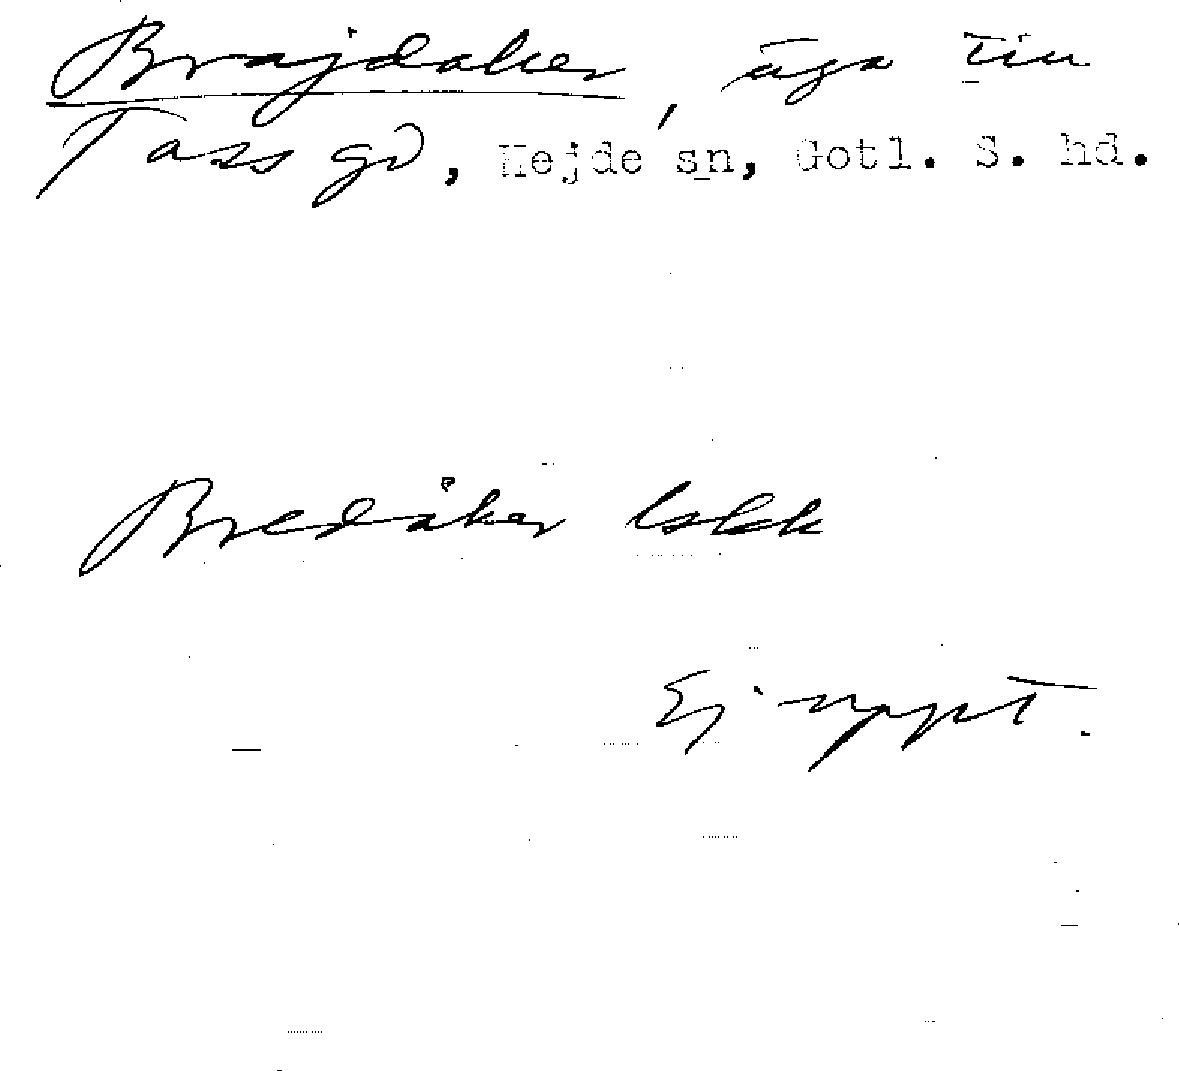 Brajdaker, äga till
Tass gd, Hejde sn, Gotl. S. hd.
Bredåker
Ej uppt.